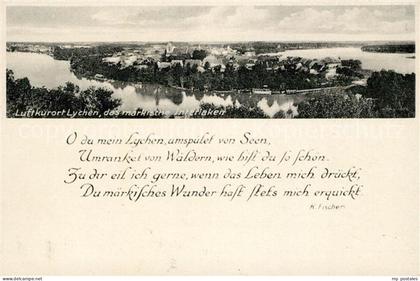 Luftkurort Lychen, das märkische Interlaken
O du mein Lychen, umspület von Seen,
Umranket von Wäldern, wie bist du so schön.
Zu dir eil ich gerne, wenn das Leben mich drückt,
Du märkisches Wunder hast stets mich erquickt.
K. Fischer
www.my-postales.com